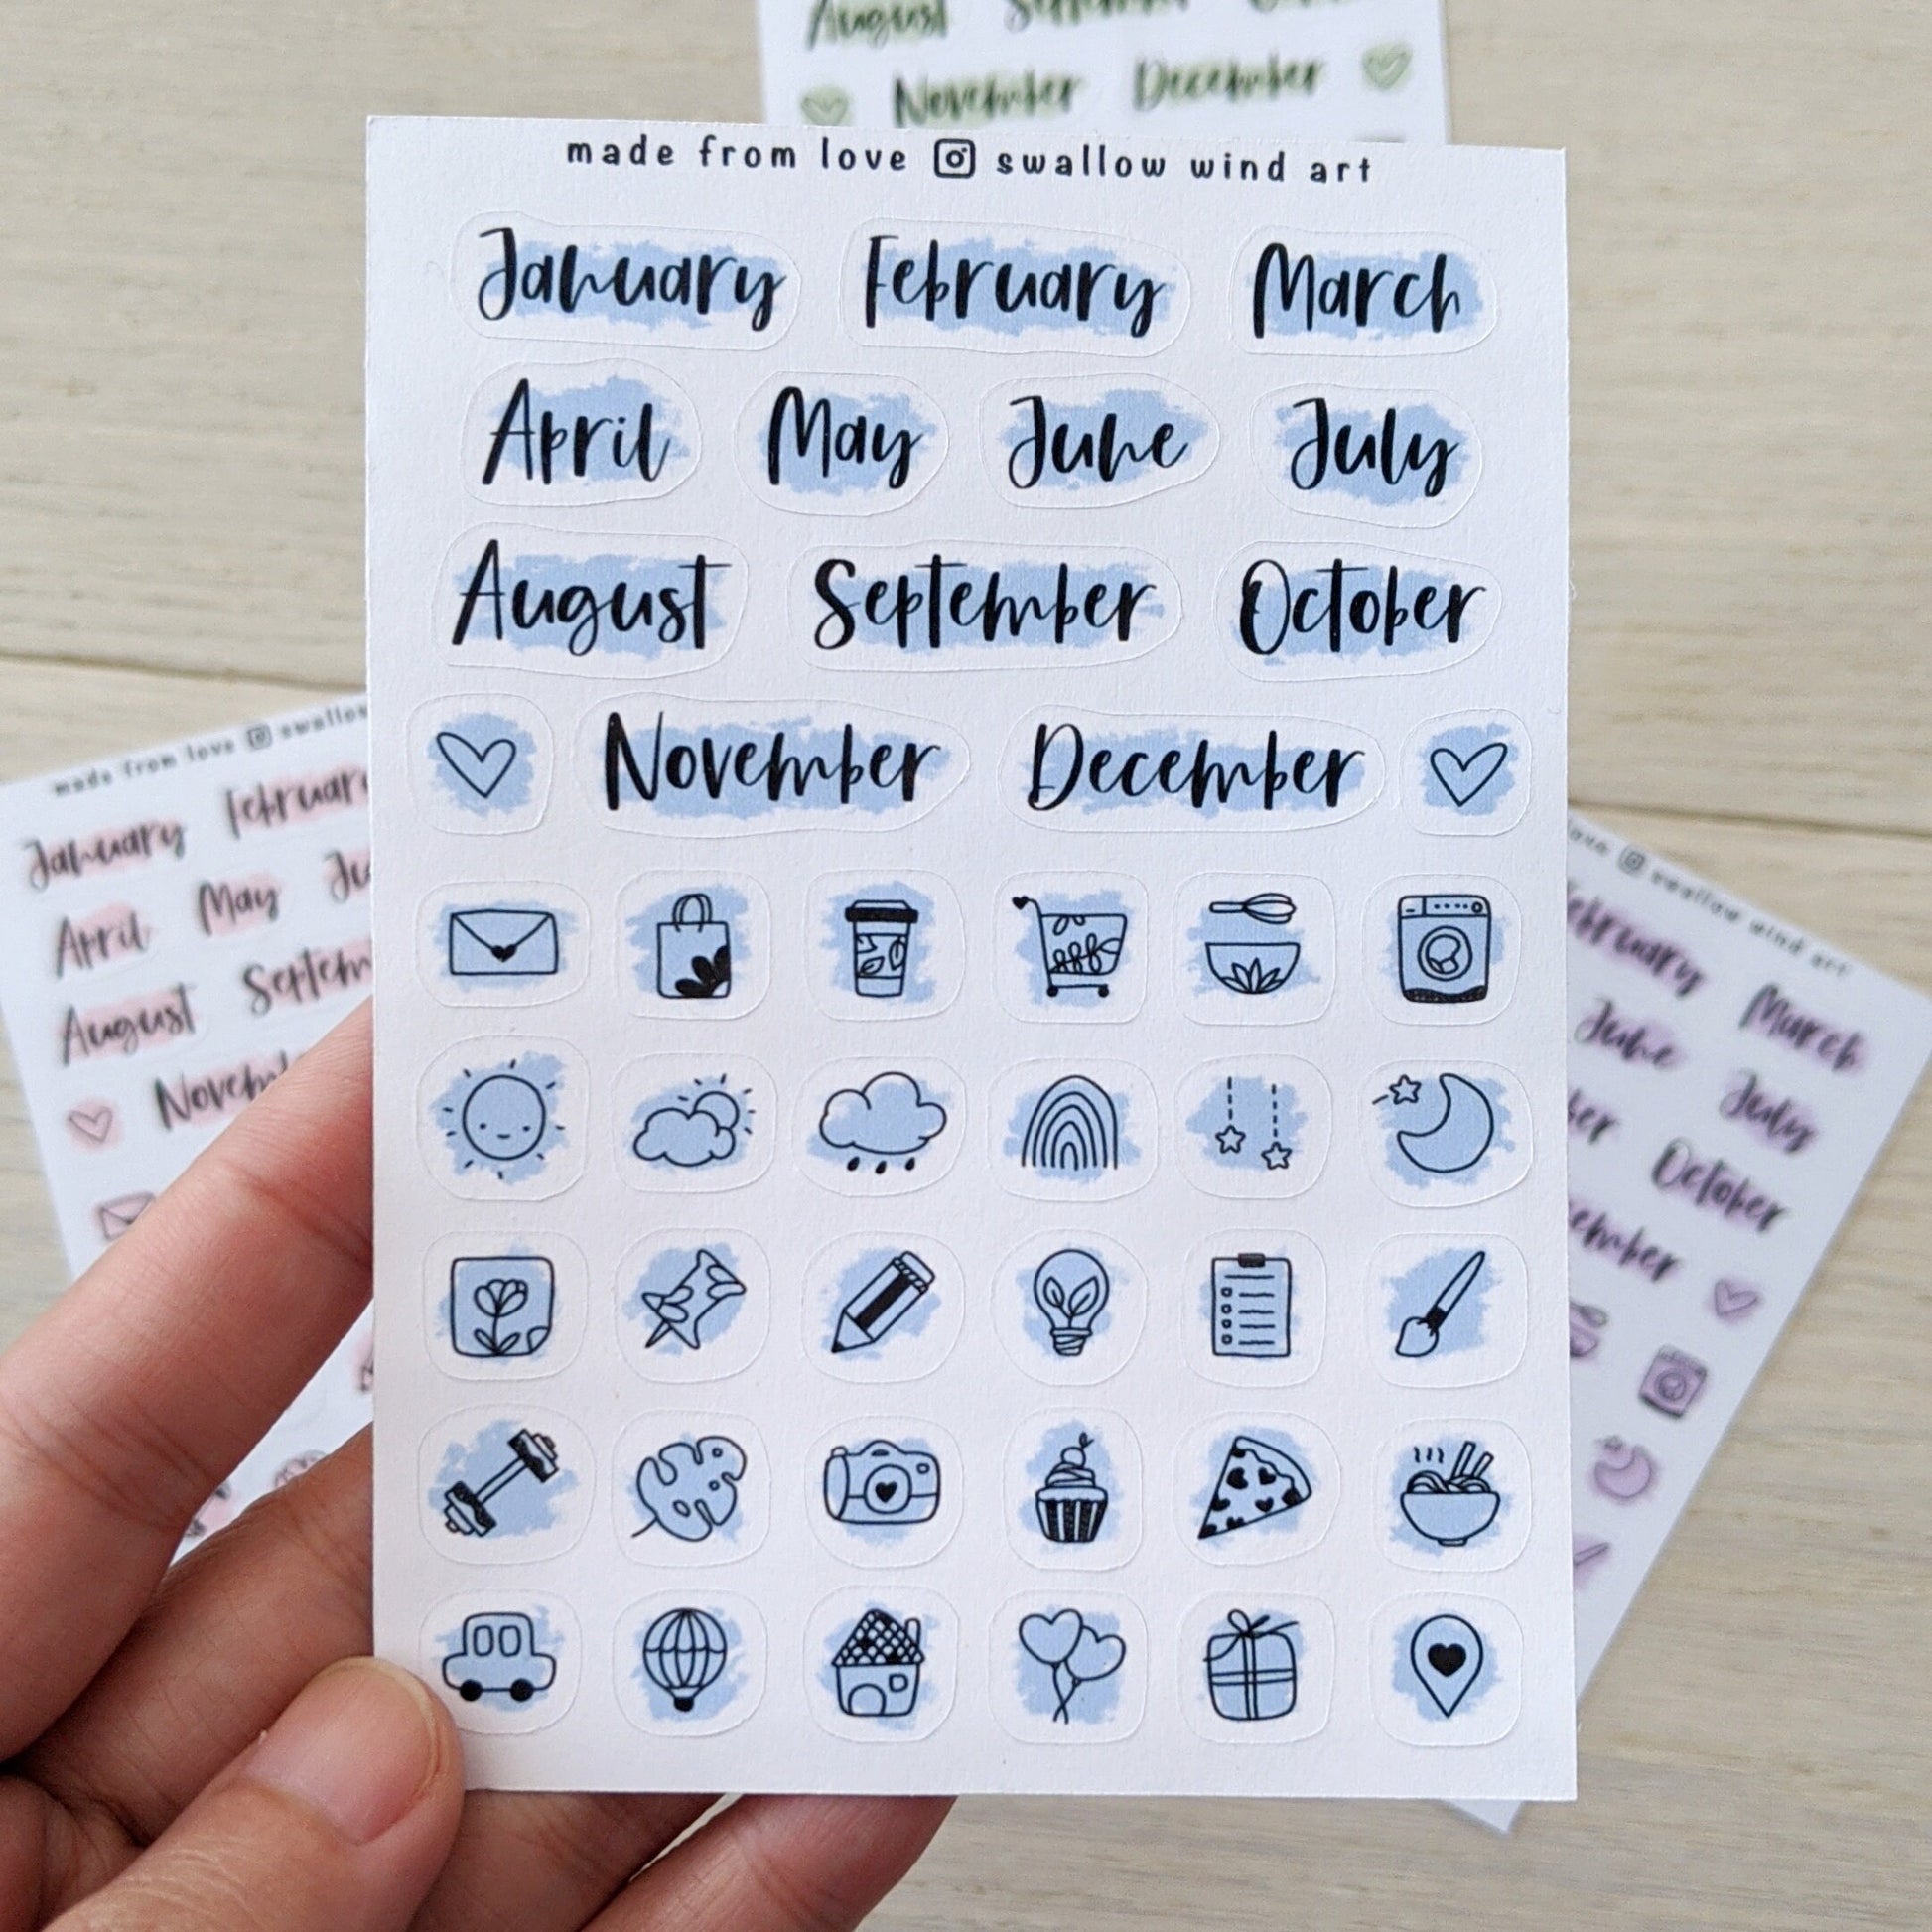 August
November December
made from love swallow wind art
January February March
April May June July
August September October
November December
made from love swallow
January February
April May
August
swallow wind art
February March
June July
October